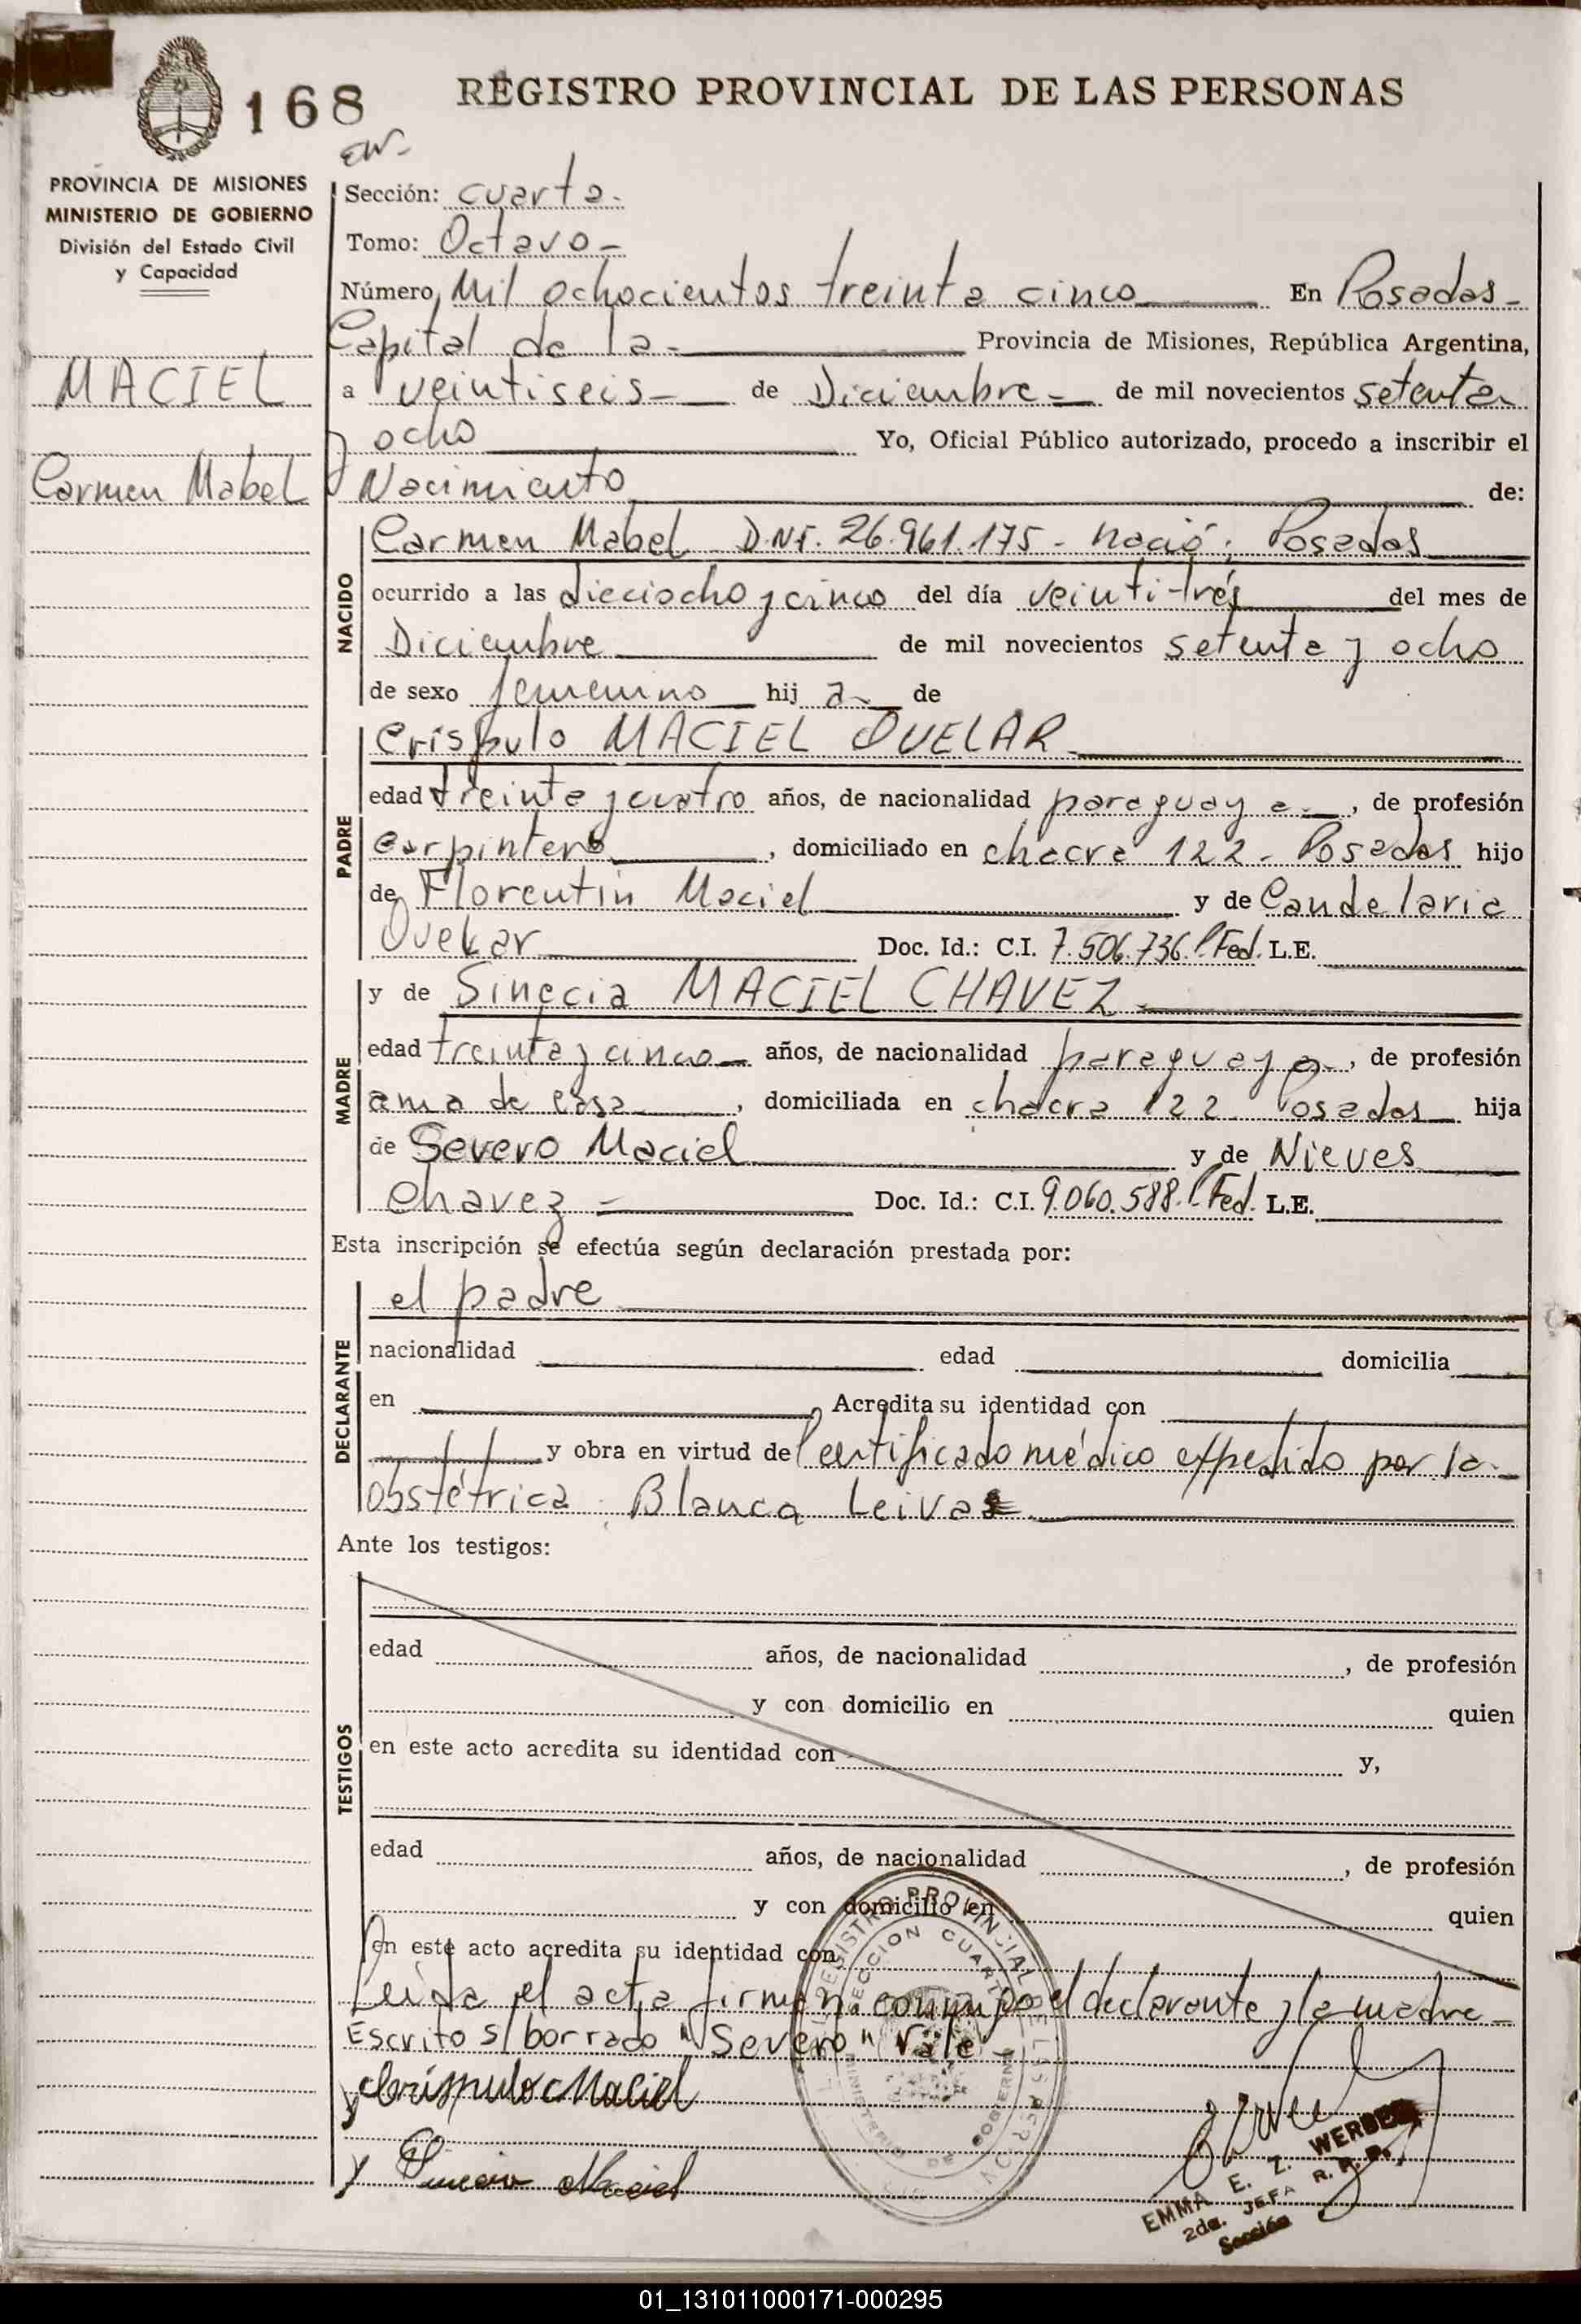 168
REGISTRO PROVINCIAL DE LAS PERSONAS
PROVINCIA DE MISIONES
MINISTERIO DE GOBIERNO
División del Estado Civil
y Capacidad
MACIEL
Carmen Mabel
Sección: cuarta.
Tomo: Octavo -
Número, Mil ochocientos treinta cinco En Posadas -
Capital de la - Provincia de Misiones, República Argentina,
a veintiseis - de Diciembre - de mil novecientos setenta
y ocho Yo, Oficial Público autorizado, procedo a inscribir el
Nacimiento de:
NACIDO
Carmen Mabel D.N.I. 26.961.175 - nació: Posadas
ocurrido a las dieciocho y cinco del día veinti-trés del mes de
Diciembre de mil novecientos setenta y ocho
de sexo femenino hij a - de
PADRE
Crispulo MACIEL OVELAR
edad treinta y cuatro años, de nacionalidad paraguaya -, de profesión
carpintero, domiciliado en chacra 122 - Posadas hijo
de Florentín Maciel y de Candelaria
Ovelar Doc. Id.: C.I. 7.506.736 P. Fed. L.E.
MADRE
y de Sinecia MACIEL CHAVEZ -
edad treinta y cinco - años, de nacionalidad paraguaya -, de profesión
ama de casa, domiciliada en chacra 122 - Posadas hija
de Severo Maciel y de Nieves
Chavez = Doc. Id.: C.I. 9.060.588. P. Fed. L.E.
Esta inscripción se efectúa según declaración prestada por:
DECLARANTE
el padre
nacionalidad edad domicilia
en, Acredita su identidad con
y obra en virtud del certificado médico expedido por la -
obstétrica Blanca Leiva
Ante los testigos:
TESTIGOS
edad años, de nacionalidad, de profesión
y con domicilio en quien
en este acto acredita su identidad con y,
edad años, de nacionalidad, de profesión
y con domicilio en quien
en este acto acredita su identidad con
Leida el acta firman conmigo el declarante y la madre -
Escrito s/ borrado "Severo" Vale -
REGISTRO PROVINCIAL DE LAS PERSONAS
SECCION CUARTA
MINISTERIO DE GOBIERNO
Crispulo Maciel
Maciel
EMMA E. Z. WERBES
2da. JEFA R. P. P.
Sección
01_131011000171-000295